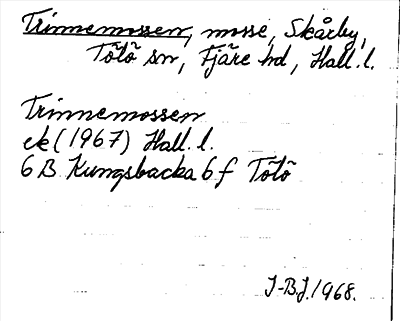 Trinnemossen, mosse, Skårby,
Tölö sn, Fjäre hd, Hall. l.
Trinnemossen
ek (1967) Hall. l.
6 B Kungsbacka 6 f Tölö
J-B.J. 1968.